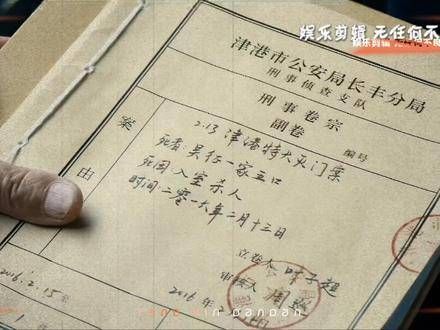 娱乐剪辑 无任何不
娱乐剪辑 无任何不
津港市公安局长丰分局
刑事侦查支队
刑事卷宗
副卷
编号
案由
2.13 津港特大灭门案
死者:吴征一家五口
死因:入室杀人
时间:二零一六年二月十三日
立卷人
审核人 周
2016.2.15
2016